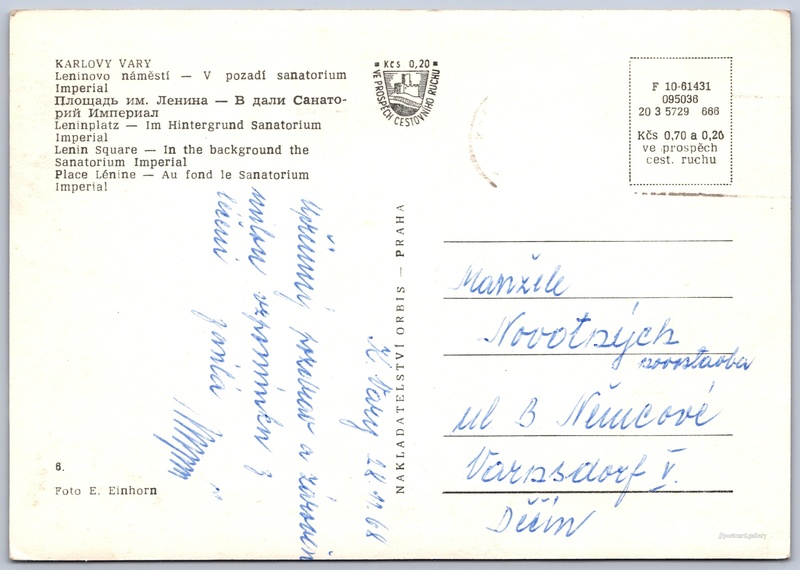 KARLOVY VARY
Leninovo náměstí — V pozadí sanatorium
Imperial
Площадь им. Ленина — В дали Санато-
рий Империал
Leninplatz — Im Hintergrund Sanatorium
Imperial
Lenin Square — In the background the
Sanatorium Imperial
Place Lénine — Au fond le Sanatorium
Imperial
Kčs 0,20
VE PROSPĚCH CESTOVNÍHO RUCHU
F 10-61431
095036
20 3 5729 666
Kčs 0,70 a 0,20
ve prospěch
cest. ruchu
K Vary 28.11.68
Upřímný pozdrav a zároveň
milou vzpomínku z
léčení
6.
Foto E. Einhorn
NAKLADATELSTVÍ ORBIS — PRAHA
Manžele
Novotných
novostavba
ul B Němcové
Varnsdorf V.
Děčín
postcard.gallery